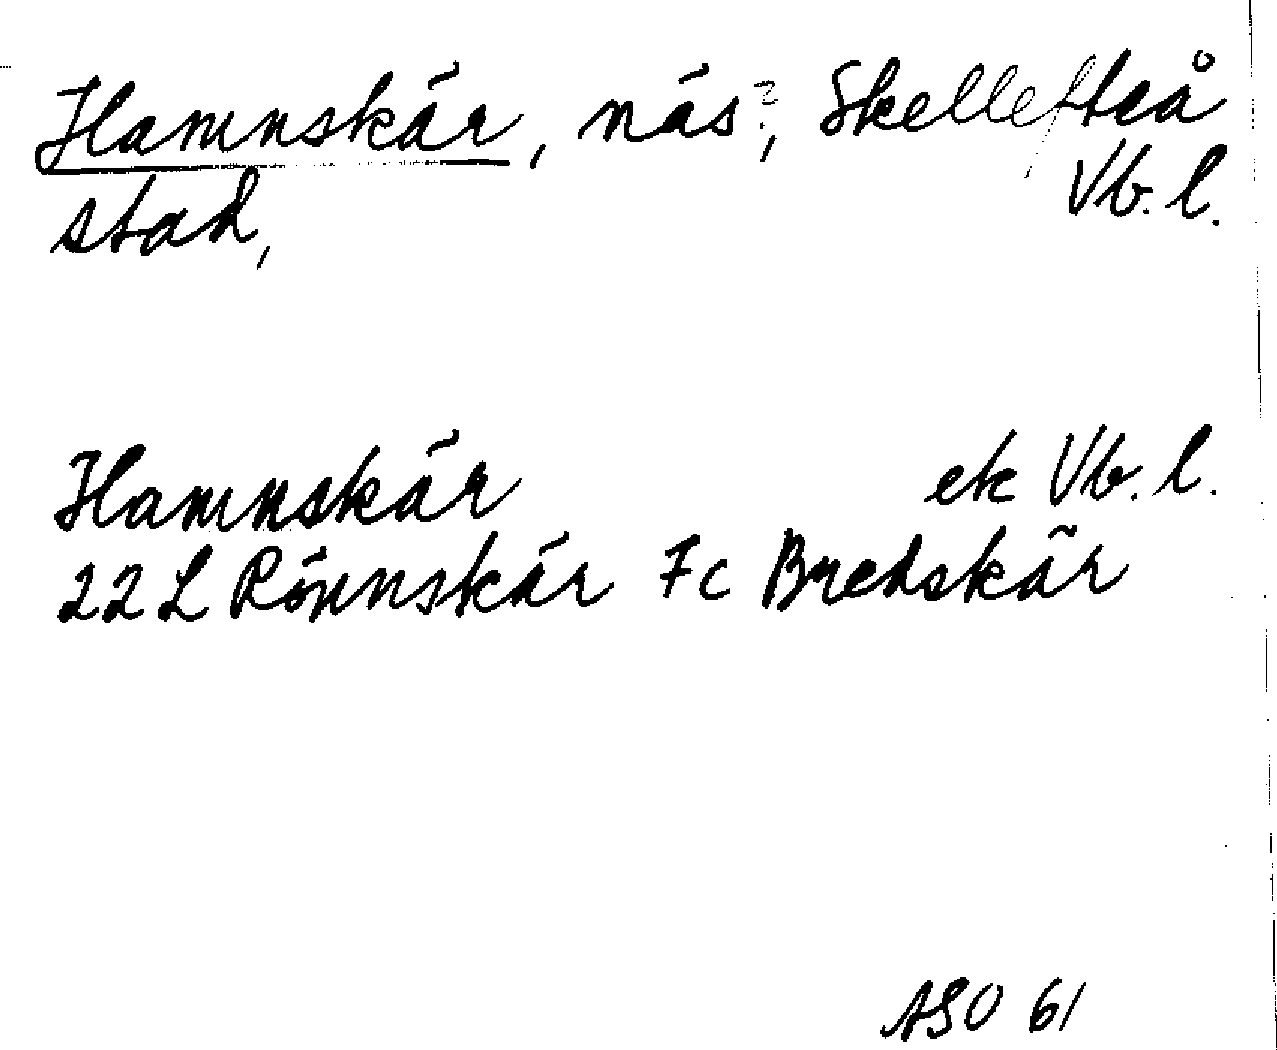 Hamnskär, näs?, Skellefteå
stad, Vb. l.
Hamnskär ek Vb. l.
22 L Rönnskär 7c Bredskär
ASO 61